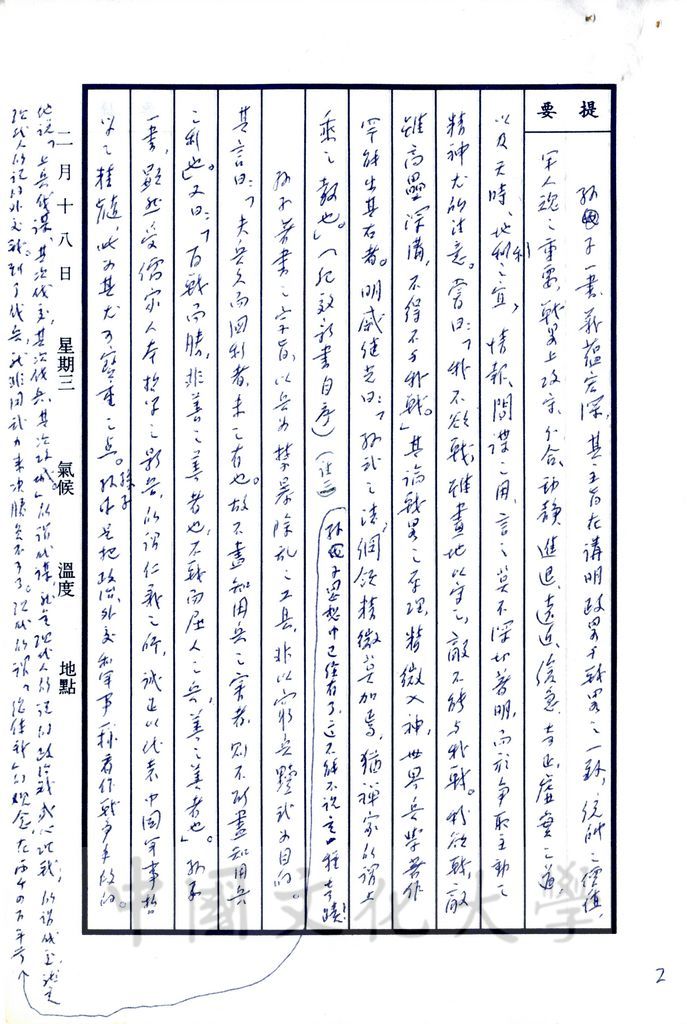 提要
孫子一書，義蘊宏深，其主旨在講明政略與戰略之一致，統帥之價值，
軍人魂之重要，戰略上攻守、分合、動靜、進退、遠近、緩急、奇正、虛實之道，
以及天時、地利之宜，情報、間諜之用，言之莫不深切著明，而於爭取主動之
精神尤為注意。嘗曰：「我不欲戰，雖畫地以守之，敵不能與我戰。我欲戰，敵
雖高壘深溝，不得不與我戰。」其論戰略之原理，精微入神，世界兵學著作
罕能出其右者。明戚繼光曰：「孫武之法，綱領精微莫加焉，猶禪家所謂上
乘之教也。」（紀效新書自序）（註二）
孫子著書之宗旨，以兵為禁暴除亂之工具，非以窮兵黷武為目的。
其言曰：「夫兵久而國利者，未之有也。故不盡知用兵之害者，則不能盡知用兵
之利也。」又曰：「百戰而勝，非善之善者也，不戰而屈人之兵，善之善者也。」孫子
一書，顯然受儒家人本哲學之影響，所謂仁義之師，誠足以代表中國軍事哲
學之精髓，此為其尤可寶重之點。孫子是把政治、外交和軍事一稱看作戰爭手段的。
二月十八日 星期三 氣候 溫度 地點
他說：「上兵伐謀，其次伐交，其次伐兵，其次攻城。」所謂伐謀，就是現代人所說的政治戰或心理戰，所謂伐交，就是
現代人所說的外交戰，到了伐兵，就非用武力來決勝負不可了。現代所謂「總體戰」的觀念在兩千四百年前
孫子思想中已經有了，這不能不說是一種奇蹟
中國文化大學
2